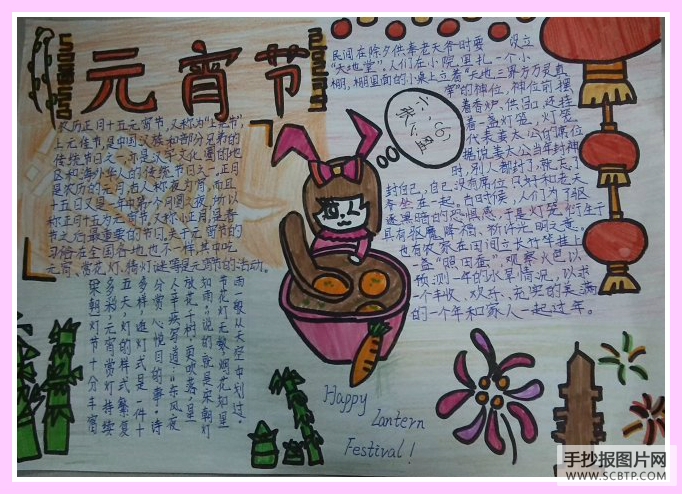 元宵节
农历正月十五元宵节，又称为“上元节”，
上元佳节，是中国汉族和部分兄弟的
传统节日之一，亦是汉字文化圈的地
区和海外华人的传统节日之一。正月
是农历的元月，古人称夜为宵，而且
十五日又是一年中第一个月圆之夜，所以
称正月十五为元宵节。又称小正月，是春
节之后最重要的节日。关于元宵节的
习俗在全国各地也不一样，其中吃
元宵、赏花灯、猜灯谜等是元宵节的活动。
民间在除夕供奉老天爷时要 设立
“天地堂”，人们在小院里扎一个小
棚，棚里面的小桌上立着“天地三界万灵真
宰”的神位，神位前摆
着香炉、供品，还挂
着一盏灯笼，灯笼
代表姜太公的席位
据说姜太公当年封神
时，别人都封了，就忘了
封自己，自己没有席位，只好和老天
爷坐在一起。古时候，人们为了驱
逐黑暗的恐惧感，于是灯笼衍生于
具有驱魔降福，祈许光明之意。
也有农家在田间立长竹竿挂上
一盏“照田蚕”，观察火色以
预测一年的水旱情况，以求
一个丰收、欢乐、充实的美满
的一个年和家人一起过年。
雨一般从天空中划过。
节花灯无数，烟花如星
如雨”说的就是宋朝灯
放花千树，更吹落，星
人辛弃疾写道：“东风夜
分赏心悦目的事。诗
多样，逛灯式是一件十
五天，灯的样式繁复
多彩，元宵赏灯持续
宋朝灯节十分丰富
Happy
Lantern
Festival!
手抄报图片网
WWW.SCBTP.COM